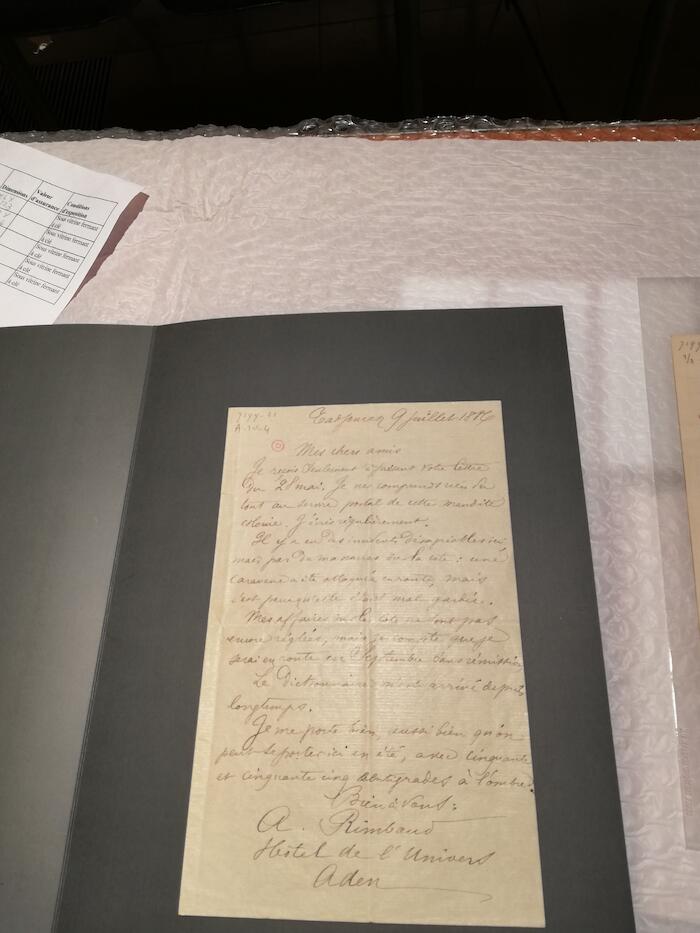 Dimensions
Valeur
d'assurance
Conditions
d'exposition
Sous vitrine fermant
à clé
Sous vitrine fermant
à clé
Sous vitrine fermant
à clé
Sous vitrine fermant
à clé
A.IV.4
Tadjoura 9 juillet 1886
Mes chers amis
Je reçois seulement à présent votre lettre
du 28 mai. Je ne comprends rien du
tout au service postal de cette maudite
colonie. J'écris régulièrement.
Il y a eu des incidents désagréables ici
mais pas de massacres sur la côte : une
caravane a été attaquée en route, mais
c'est parce qu'elle était mal gardée.
Mes affaires sur la côte ne sont pas
encore réglées, mais je compte que je
serai en route en Septembre sans rémission
Le Dictionnaire m'est arrivé depuis
longtemps.
Je me porte bien, aussi bien qu'on
peut se porter ici en été, avec cinquante
et cinquante cinq centigrades à l'ombre.
Bien à vous :
A. Rimbaud
Hôtel de l'Univers
Aden